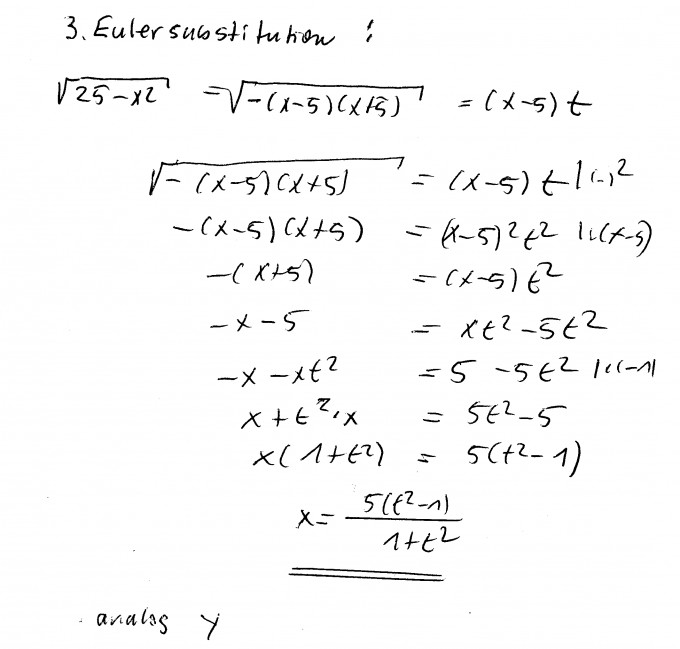 3. Eulersubstitution :
√25-x2 = √-(x-5)(x+5) = (x-5) t
√-(x-5)(x+5) = (x-5) t |(..)²
-(x-5)(x+5) = (x-5)² t² |:(x-5)
-(x+5) = (x-5) t²
-x-5 = xt²-5t²
-x-xt² = 5 -5t² |·(-1)
x+t²·x = 5t²-5
x(1+t²) = 5(t²-1)
x= 5(t²-1)
1+t²
analog y